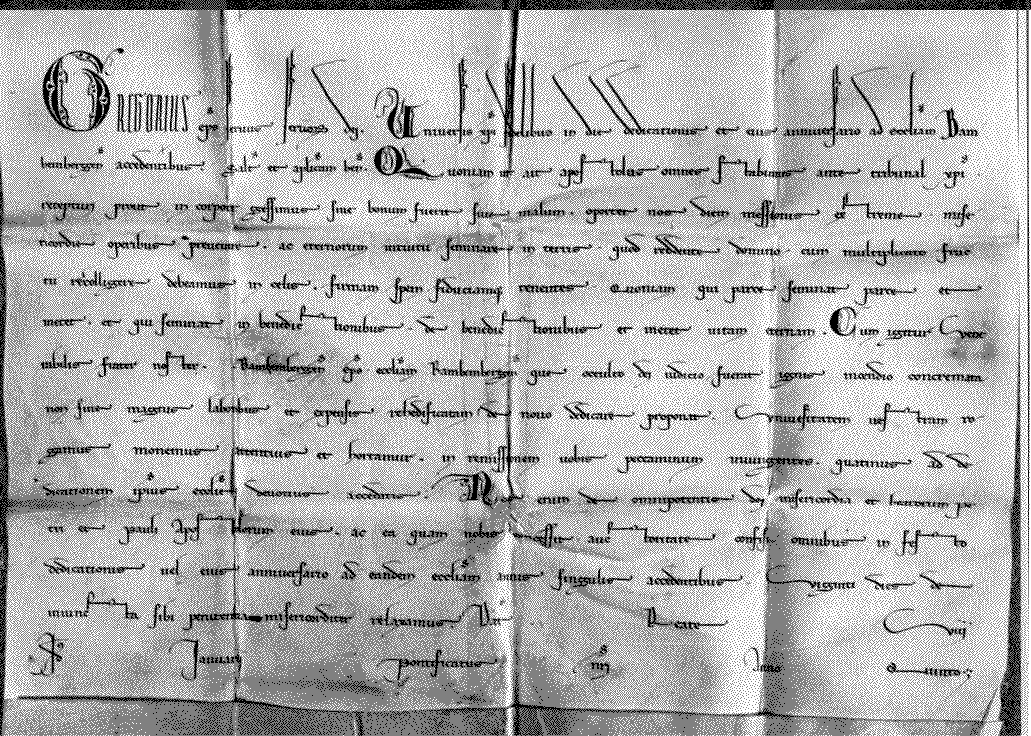 GREGORIUS eps seruus seruoꝝ dj. Uniuersis xpi fidelibus in die dedicationis et eius anniuersario ad eccliam Bam
bembergen accedentibus salt et aplicam ben. Quoniam ut ait apostolus omnes stabimus ante tribunal xpi
recepturi prout in corpore gessimus siue bonum fuerit siue malum. oportet nos diem messionis extreme mise
ricordie operibus preuenire. ac eternorum intuitu seminare in terris quod reddente domino cum multiplicato fruc
tu recolligere debeamus in celis. firmam spem fiduciamq tenentes Quoniam qui parce seminat parce et
metet. et qui seminat in benedictionibus. de benedictionibus et metet uitam eternam. Cum igitur Uene
rabilis frater noster. Bambembergen eps eccliam Bambembergen que occulto dei iudicio fuerat ignis incendio concremata
non sine magnis laboribus et expensis rehedificatam de nouo dedicare proponat. Uniuersitatem uestram ro
gamus monemus attentius et hortamur. in remissionem uobis peccaminum iniungentes. quatinus ad de
dicationem ipsius ecclie deuotius accedatis. Nos enim de omnipotentis dei misericordia et beatorum pe
tri et pauli Apostolorum eius. ac ea quam nobis concessit auctoritate confisi. omnibus in festo
dedicationis uel eius anniuersario ad eandem eccliam annis singulis accedentibus. Uiginti dies de
iniuncta sibi penitentia misericorditer relaxamus. Dat Reate Uiij
kl Januarij pontificatus nri Anno Quinto.